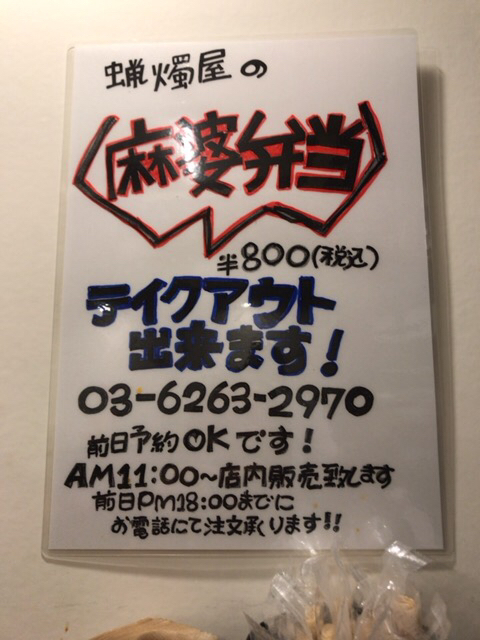 蝋燭屋の
麻婆弁当
¥800(税込)
テイクアウト
出来ます!
03-6263-2970
前日予約OKです!
AM11:00〜店内販売致します
前日PM18:00までに
お電話にて注文承ります!!